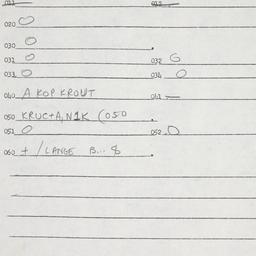 011 012
020 0
030 0
031 0 032 6
033 0 034 0
040 A KOP KROUT 041 —
050 (050
051 0 052 0
060 + / LANGE B... 8